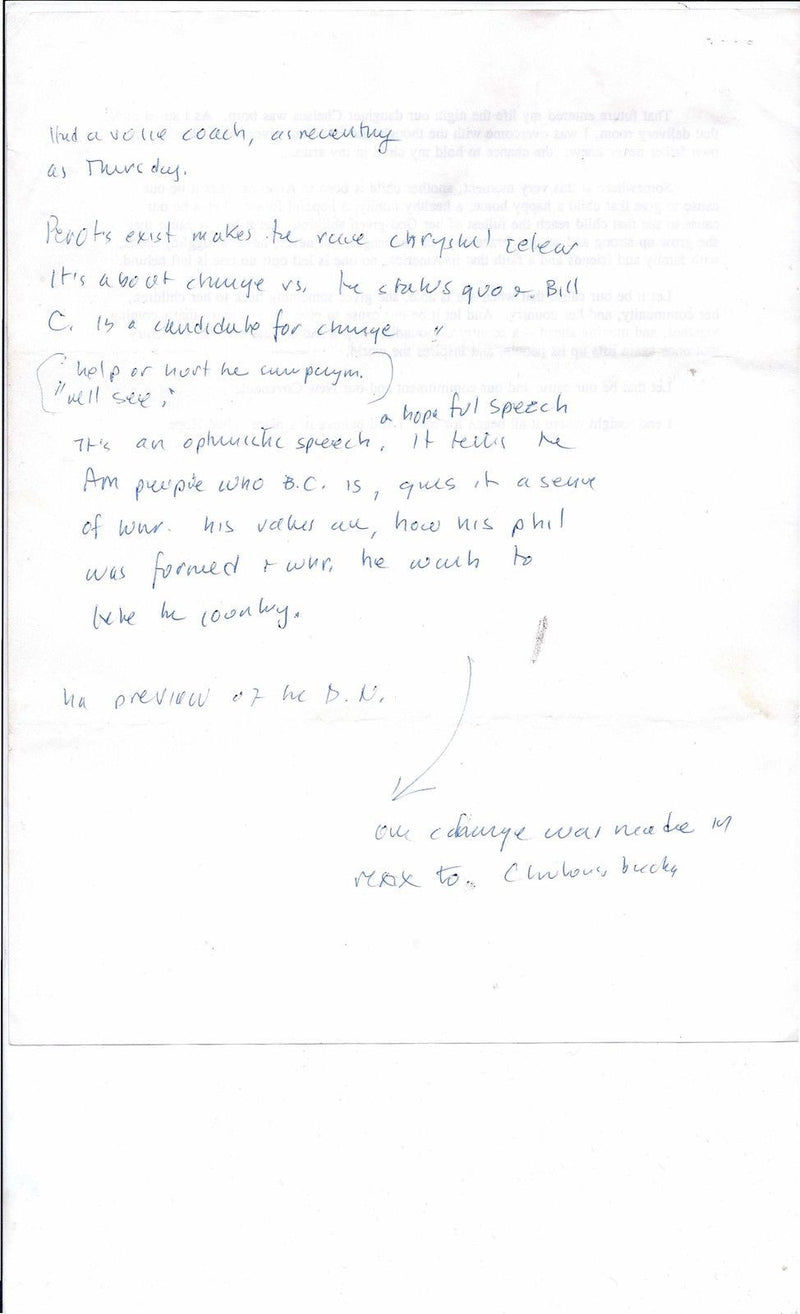 Had a voice coach, as recently
as Thursday.
Perot's exist makes the race chrystal celear
It's about change vs. the status quo & Bill
C. is a candidate for change"
(help or hurt the campaign.
"we'll see")
a hopeful speech
It's an optimistic speech. It tells the
Am people who B.C. is, gives it a sense
of what his values are, how his phil
was formed & where he wants to
take the country.
preview of the D.N.
one change was made in
to